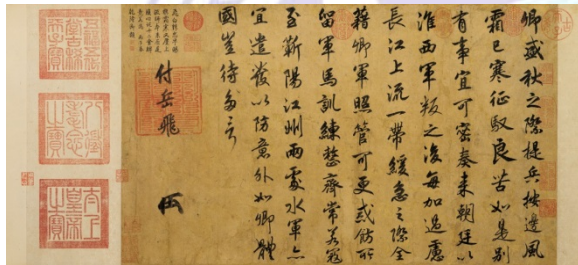 卿盛秋之際提兵按邊風
霜已寒征馭良苦如是別
有事宜可密奏来朝廷以
淮西軍叛之後每加過慮
長江上流一帶緩急之際全
藉卿軍照管可更戒飭所
留軍馬訓練整齊常若寇
至蘄陽江州兩處水軍亦
宜遣發以防意外如卿體
國豈待多言
付岳飛
八徵耄念之寶
太上皇帝之寶